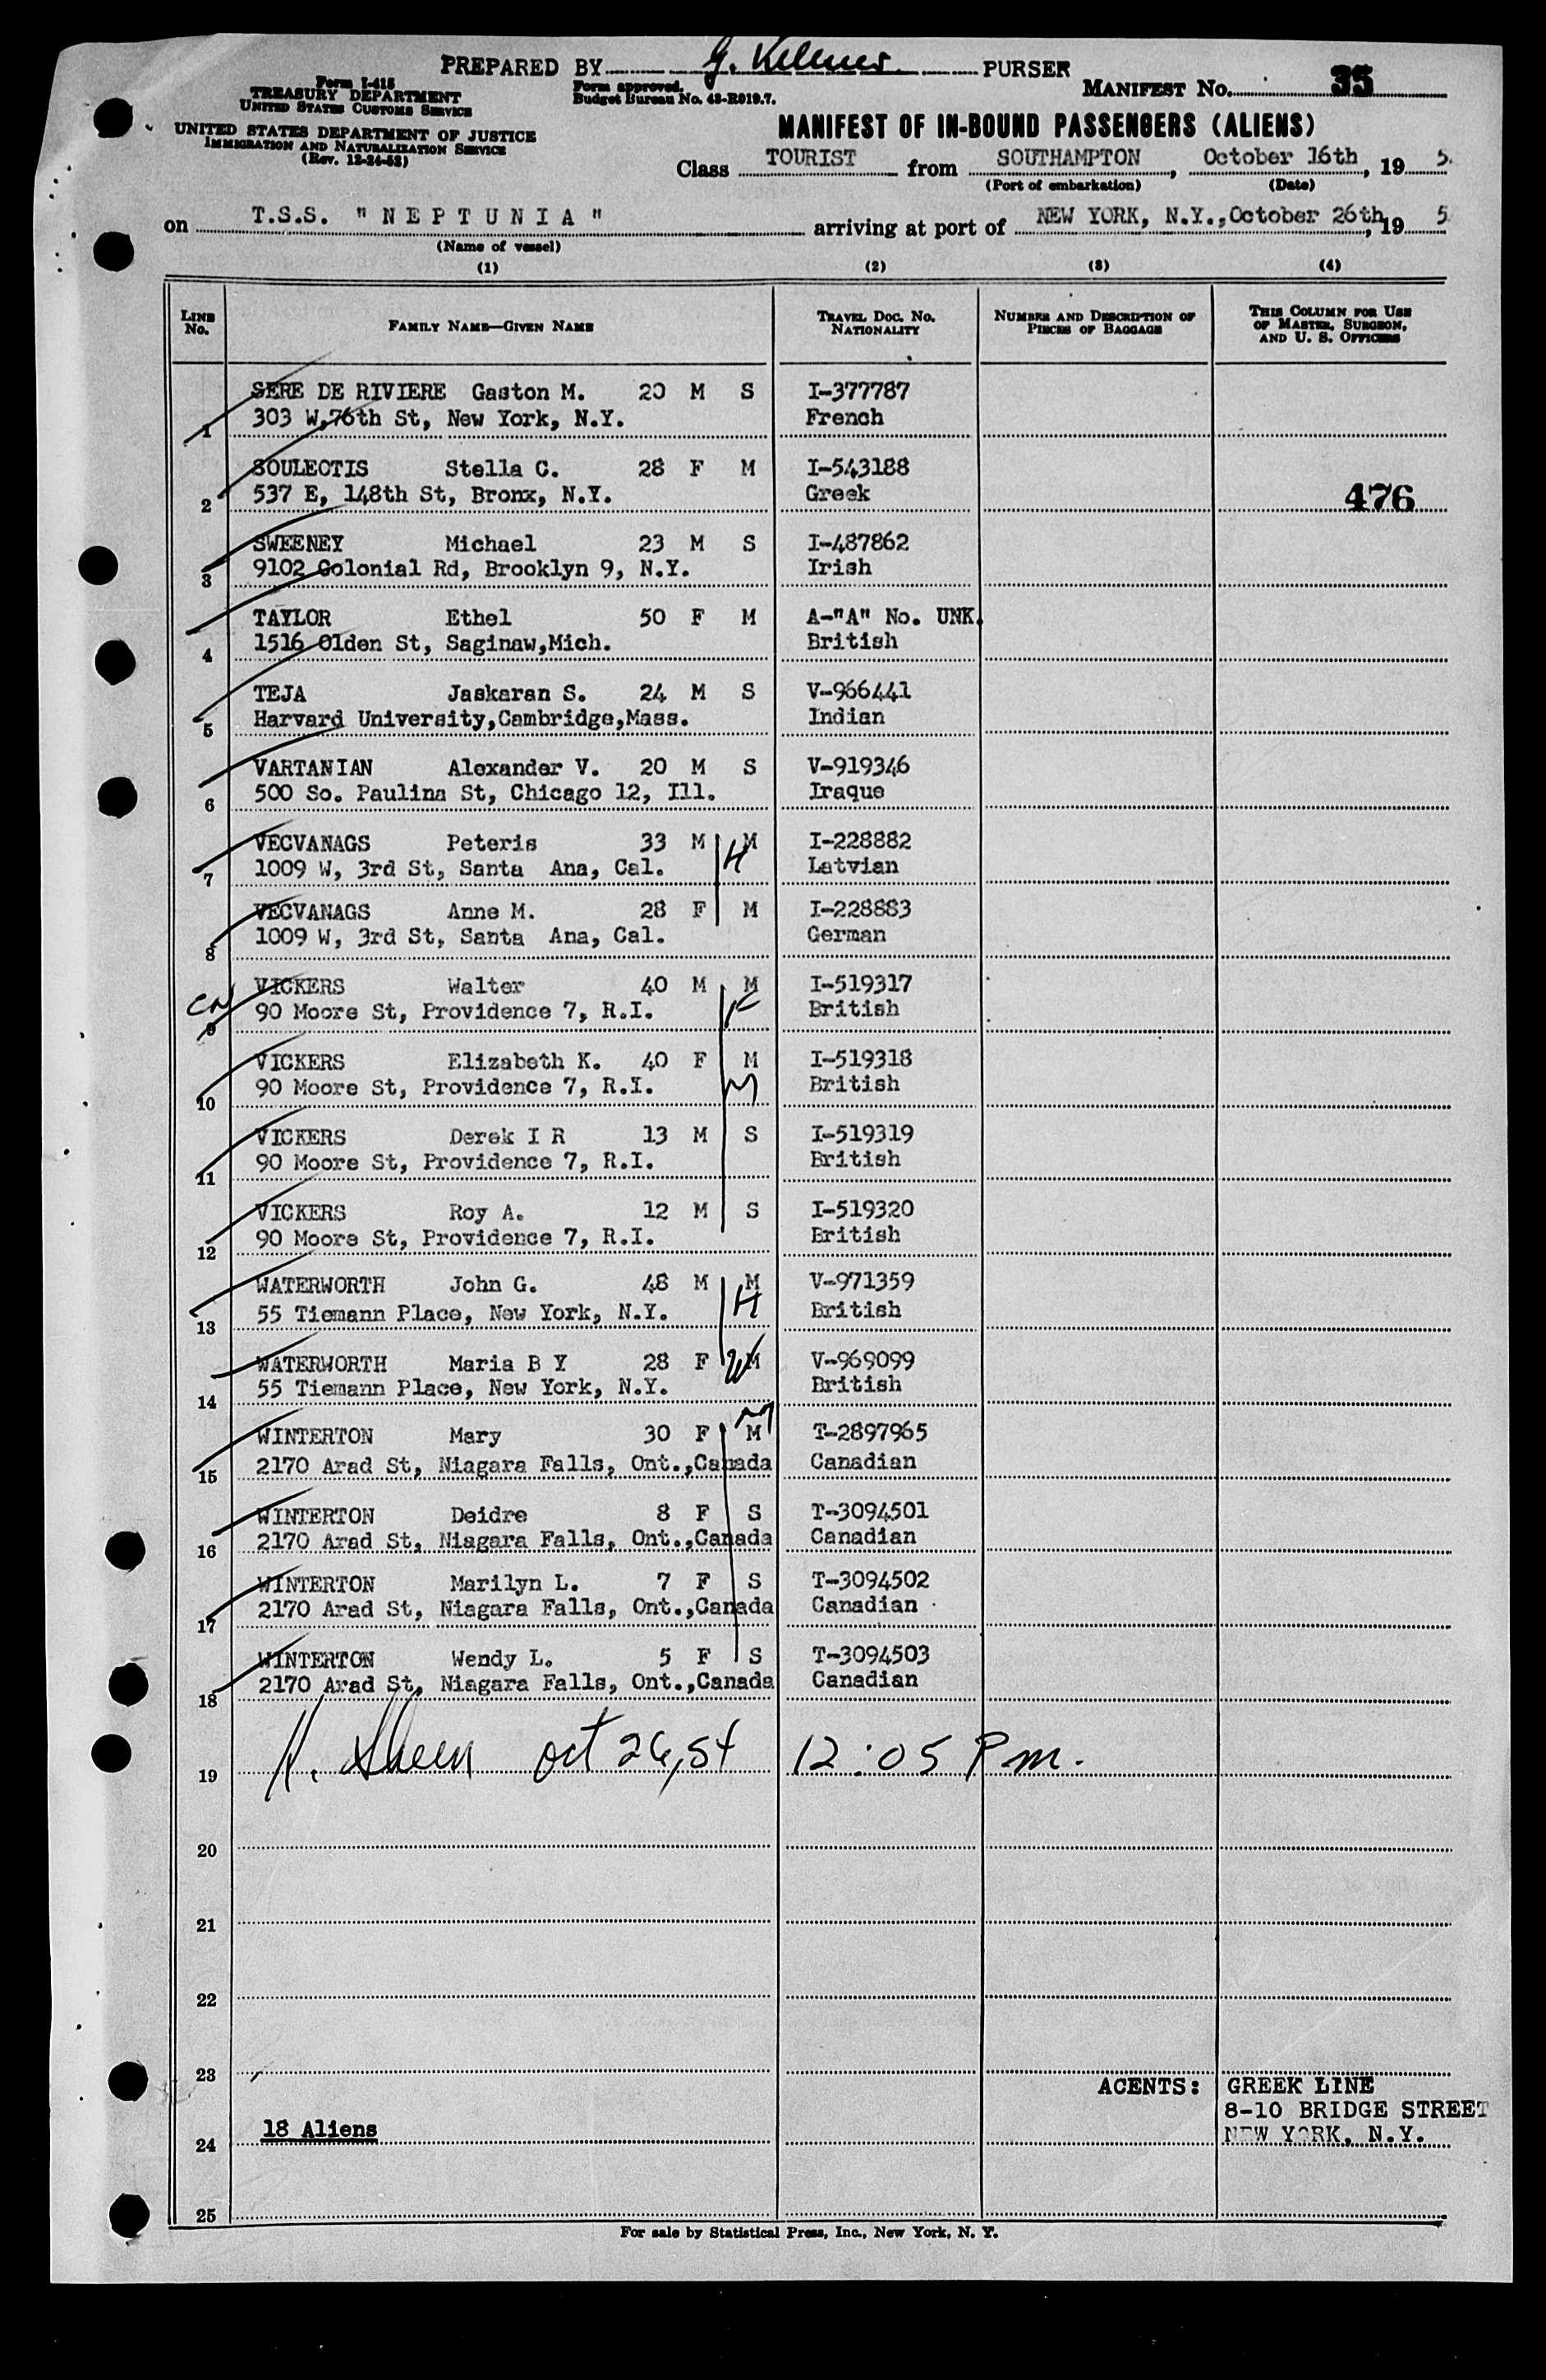 PREPARED BY G. Kellner PURSER
Form I-415
TREASURY DEPARTMENT
UNITED STATES CUSTOMS SERVICE
Form approved.
Budget Bureau No. 43-R019.7.
MANIFEST No. 35
UNITED STATES DEPARTMENT OF JUSTICE
IMMIGRATION AND NATURALIZATION SERVICE
(Rev. 12-24-52)
MANIFEST OF IN-BOUND PASSENGERS (ALIENS)
Class TOURIST from SOUTHAMPTON, October 16th, 19 5
(Port of embarkation) (Date)
on T.S.S. "NEPTUNIA" arriving at port of NEW YORK, N.Y., October 26th, 19 5
(Name of vessel)
(1) (2) (3) (4)
LINE No. FAMILY NAME—GIVEN NAME TRAVEL DOC. No. NATIONALITY NUMBER AND DESCRIPTION OF PIECES OF BAGGAGE THIS COLUMN FOR USE OF MASTER, SURGEON, AND U. S. OFFICERS
SERE DE RIVIERE Gaston M. 20 M S I-377787
1 303 W,76th St, New York, N.Y. French
SOULEOTIS Stella C. 28 F M I-543188
2 537 E, 148th St, Bronx, N.Y. Greek 476
SWEENEY Michael 23 M S I-487862
3 9102 Colonial Rd, Brooklyn 9, N.Y. Irish
TAYLOR Ethel 50 F M A-"A" No. UNK.
4 1516 Olden St, Saginaw,Mich. British
TEJA Jaskaran S. 24 M S V-966441
5 Harvard University,Cambridge,Mass. Indian
VARTANIAN Alexander V. 20 M S V-919346
6 500 So. Paulina St, Chicago 12, Ill. Iraque
VECVANAGS Peteris 33 M M I-228882
7 1009 W, 3rd St, Santa Ana, Cal. H Latvian
VECVANAGS Anne M. 28 F M I-228883
8 1009 W, 3rd St, Santa Ana, Cal. German
VICKERS Walter 40 M M I-519317
9 90 Moore St, Providence 7, R.I. F British
VICKERS Elizabeth K. 40 F M I-519318
10 90 Moore St, Providence 7, R.I. M British
VICKERS Derek I R 13 M S I-519319
11 90 Moore St, Providence 7, R.I. British
VICKERS Roy A. 12 M S I-519320
12 90 Moore St, Providence 7, R.I. British
WATERWORTH John G. 48 M M V-971359
13 55 Tiemann Place, New York, N.Y. H British
WATERWORTH Maria B Y 28 F W M V-969099
14 55 Tiemann Place, New York, N.Y. British
WINTERTON Mary 30 F M M T-2897965
15 2170 Arad St, Niagara Falls, Ont.,Canada Canadian
WINTERTON Deidre 8 F S T-3094501
16 2170 Arad St, Niagara Falls, Ont.,Canada Canadian
WINTERTON Marilyn L. 7 F S T-3094502
17 2170 Arad St, Niagara Falls, Ont.,Canada Canadian
WINTERTON Wendy L. 5 F S T-3094503
18 2170 Arad St, Niagara Falls, Ont.,Canada Canadian
19 H. Sheen oct 26,54 12:05 Pm.
20
21
22
23
AGENTS: GREEK LINE
8-10 BRIDGE STREET
24 18 Aliens NEW YORK, N.Y.
25
For sale by Statistical Press, Inc., New York, N. Y.